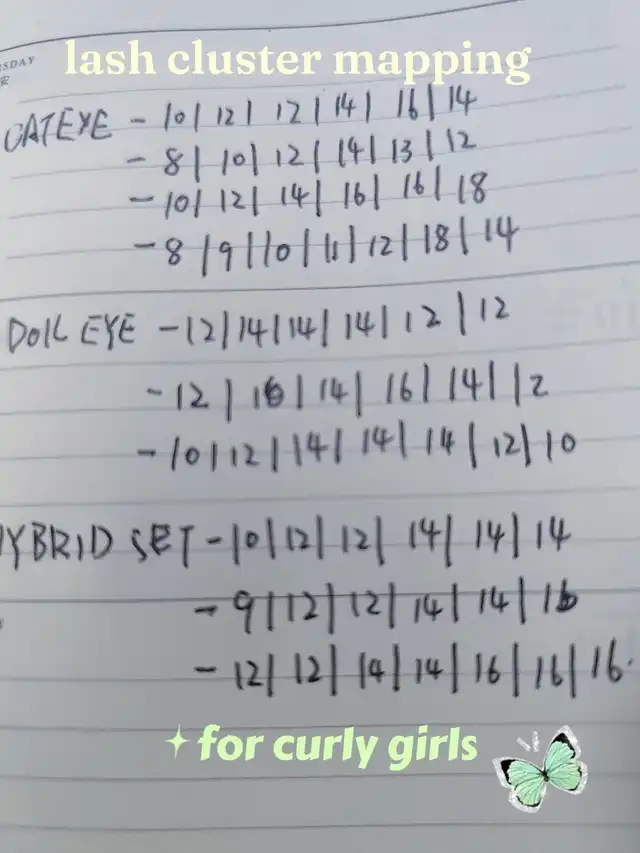 RSDAY
lash cluster mapping
CATEYE - 10 | 12 | 12 | 14 | 16 | 14
- 8 | 10 | 12 | 14 | 13 | 12
- 10 | 12 | 14 | 16 | 16 | 18
- 8 | 9 | 10 | 11 | 12 | 18 | 14
DOLL EYE - 12 | 14 | 14 | 14 | 12 | 12
- 12 | 16 | 14 | 16 | 14 | 12
- 10 | 12 | 14 | 14 | 14 | 12 | 10
HYBRID SET - 10 | 12 | 12 | 14 | 14 | 14
- 9 | 12 | 12 | 14 | 14 | 16
- 12 | 12 | 14 | 14 | 16 | 16 | 16
for curly girls